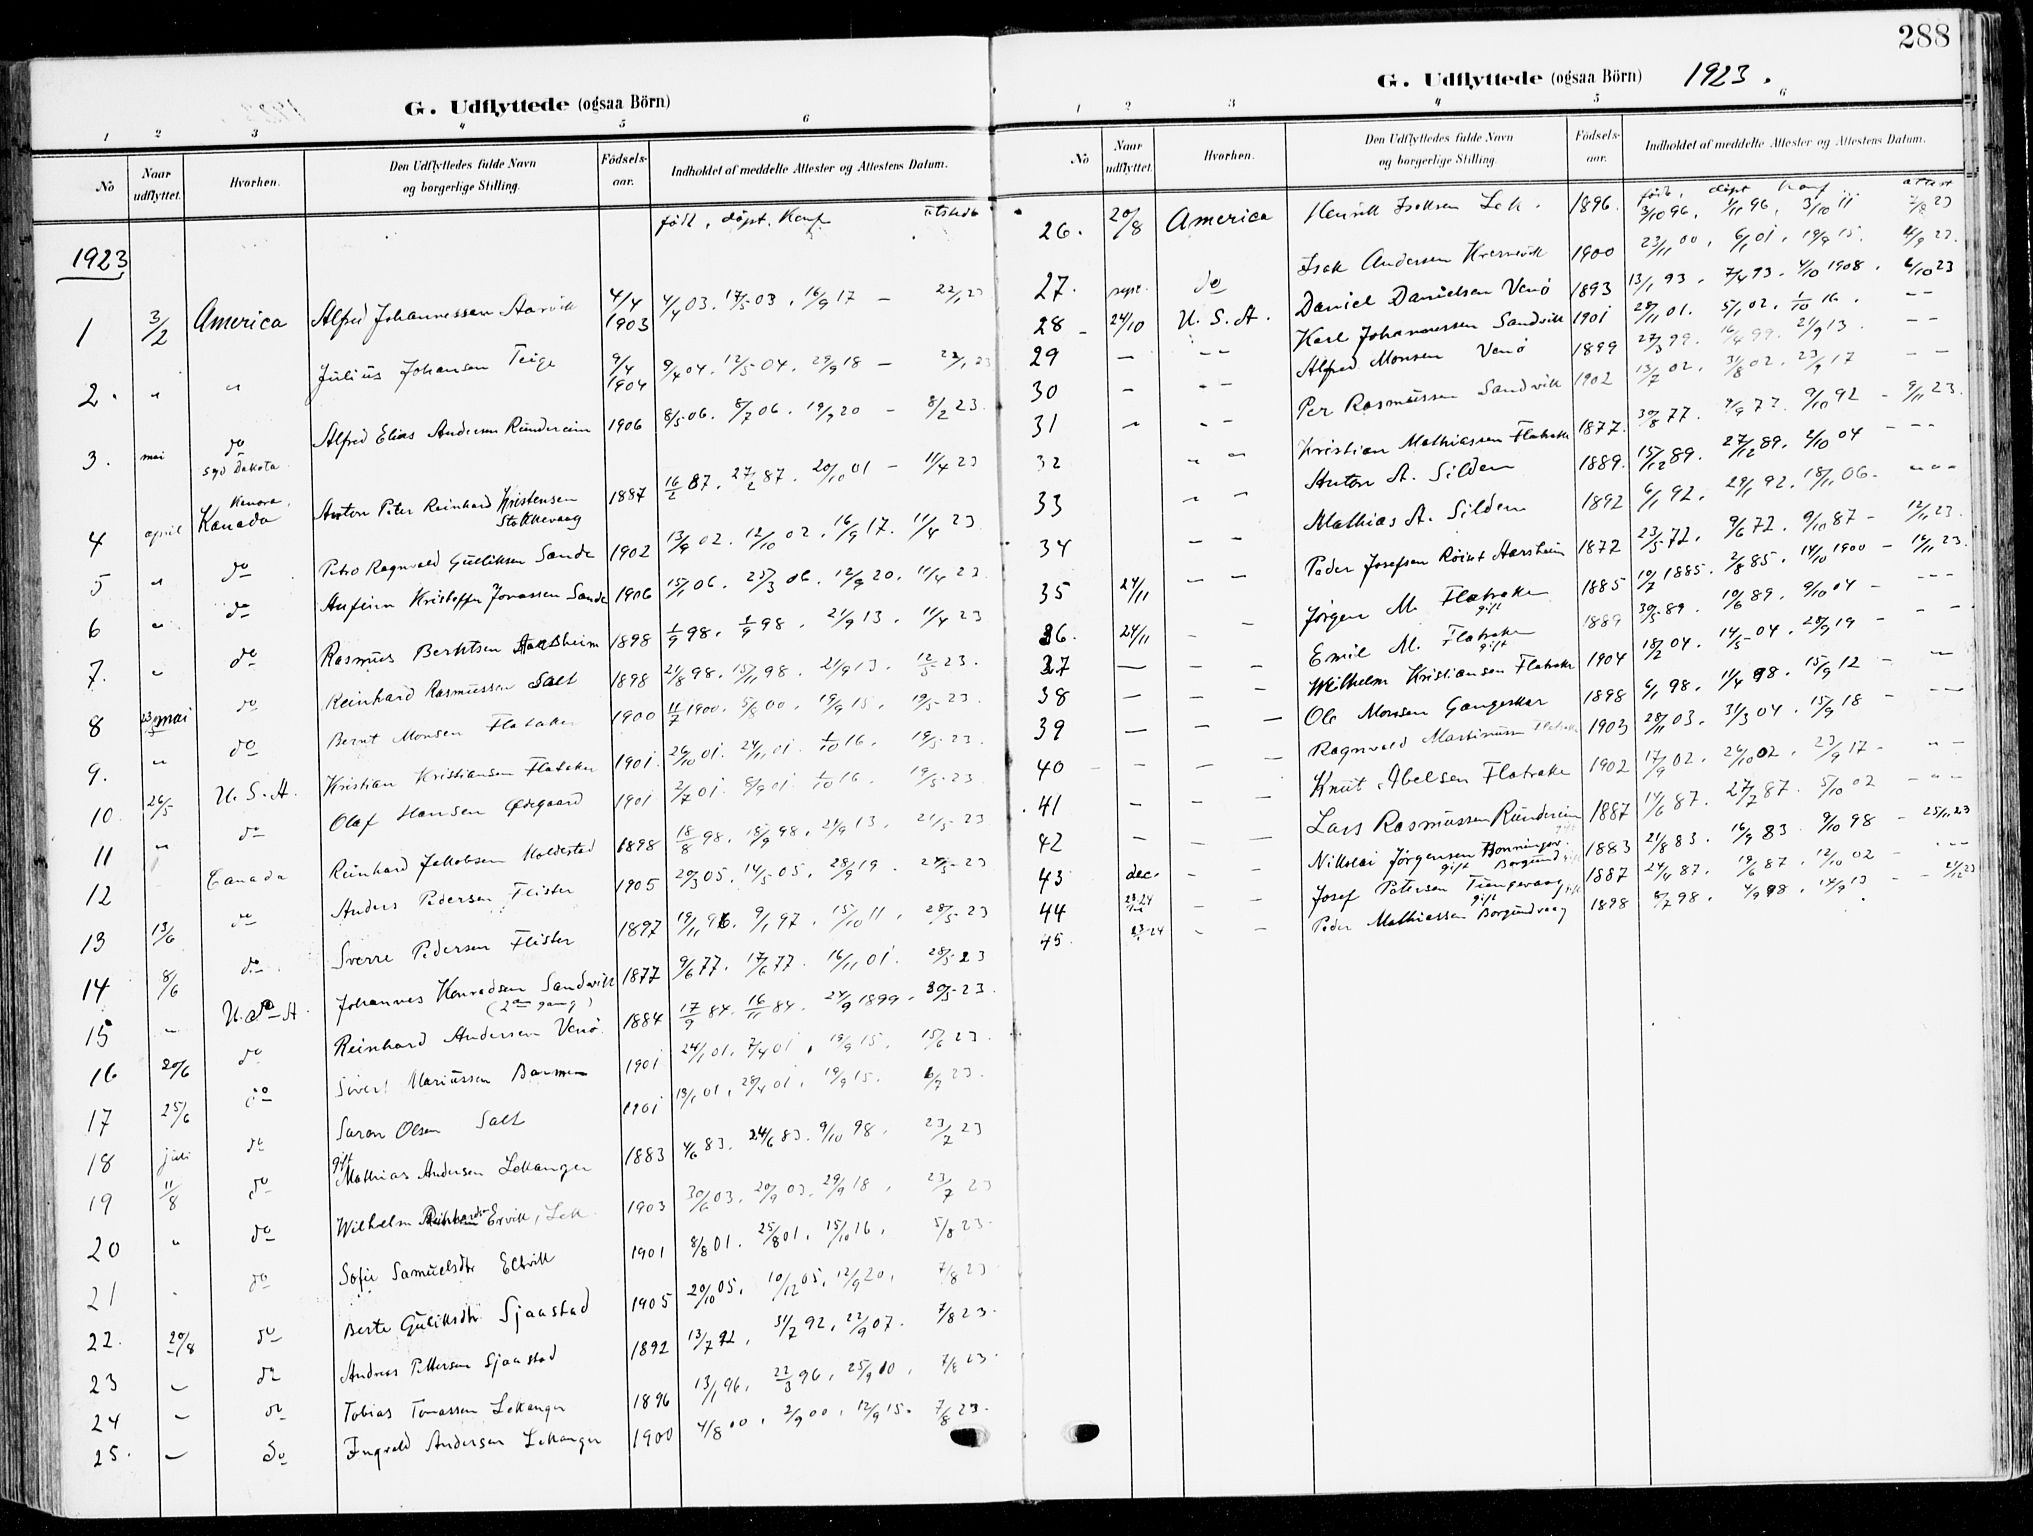 288
G. Udflyttede (ogsaa Börn)
1 2 3 4 5 6
No Naar udflyttet. Hvorhen. Den Udflyttedes fulde Navn og borgerlige Stilling. Födsels-aar. Indholdet af meddelte Attester og Attestens Datum.
född, döpt. Konf
1923
1 3/2 America Alfred Johannessen Aarvik 4/4 1903 4/4 03. 17/5 03. 16/9 17 — 22/1 23
2. " " Julius Johansen Teige 9/4 1904 9/4 04. 12/5 04. 29/9 18 — 22/1 23
3. mai do Syd Dakota Alfred Elias Andersen Rundereim 1906 8/5 06. 8/7 06. 19/9 20 — 8/2 23.
4 april Kenora, Kanada Anton Peter Reinhard Kristensen Stokkevaag 1887 16/2 87. 27/2 87. 20/10 01 — 11/4 23
5 " do Petro Ragnvald Gulliksen Sande 1902 13/9 02. 12/10 02. 16/9 17. 11/4 23
6 " do Anfinn Kristoffer Jonassen Sande 1906 15/1 06. 25/3 06. 12/9 20. 11/4 23
7. " do Rasmus Berntsen Aarsheim 1898 1/9 98. 21/9 13. 11/4 23
8 23/5 mai do Reinhard Rasmussen Salt 1898 21/8 98. 15/11 98. 21/9 13. 12/5 23.
9. " do Bernt Monsen Flatraker 1900 11/7 1900. 5/8 00. 19/9 15. 19/5 23
10. 26/5 U. S. A. Kristian Kristiansen Flatraker 1901. 26/10 01. 24/11 01. 1/10 16. 19/5 23.
11 " do Olaf Hansen Ødegaard 1901 2/7 01. 8/9 01. 1/10 16. 19/5 23.
12 Canada Reinhard Jakobsen Koldestad 1898 18/8 98. 18/9 98. 21/9 13. 21/5 23
13 13/6 do Anders Pedersen Flister 1905 20/3 05. 14/5 05. 28/9 19 23
14 8/6 do Sverre Pedersen Flister 1897 19/11 96. 9/1 97. 15/10 11. 28/5 23
15 U. S. A. Johannes Konradsen Sandvik (2den gang) 1877 9/6 77. 17/6 77. 16/11 01. 28/5 23
16 20/6 do Reinhard Andersen Venö. 1884 17/9 84. 16/11 84. 24/9 1899. 30/5 23.
17 25/6 do Sivert Mariussen Barmen 1901 24/1 01. 7/4 01. 19/9 15. 15/6 23.
18 juli do Saron Olsen Salt 1901 13/1 01. 28/4 01. 19/9 15. 23.
19 11/8 do gift Mathias Andersen Lekanger 1883 4/6 83. 24/6 83. 9/10 98. 23/7 23
20 " do Wilhelm Ervik, Lek. 1903 30/6 03. 20/9 03. 29/9 18. 23/7 23
21 do Sofie Samuelsdtr Eltvik 1901 8/8 01. 25/8 01. 15/10 16. 5/8 23.
22. 20/8 do Berte Guliksdtr Sjaastad 1905 20/10 05. 10/12 05. 12/9 20. 7/8 23
23 do Andreas Pettersen Sjaastad 1892 13/7 92. 31/7 92. 22/9 07. 7/8 23.
24 do Tobias Tomassen Lekanger 1896 13/1 96. 22/3 96. 25/9 10. 7/8 23.
25. do Ingvald Andersen Lekanger 1900 4/8 00. 2/9 00. 12/9 15. 7/8 23.
G. Udflyttede (ogsaa Börn) 1923.
1 2 3 4 5 6
No Naar udflyttet. Hvorhen. Den Udflyttedes fulde Navn og borgerlige Stilling. Födsels-aar. Indholdet af meddelte Attester og Attestens Datum.
född. döpt Konf attest
26. 20/8 America Henrik Isaksen Lek. 1896. 3/10 96. 1/11 96. 3/10 11 23
27. sept. do Isak Andersen 1900 23/11 00. 6/1 01. 19/9 15. 4/9 23.
28 24/10 U. S. A. Daniel Danielsen Venö 1893 13/1 93. 7/4 93. 4/10 1908. 6/10 23
29 — Karl Johannessen Sandvik 1901 28/11 01. 5/1 02. 1/10 16.
30 — Alfred Monsen Venö 1899 27/3 99. 16/4 99. 21/9 13.
31 Per Rasmussen Sandvik 1902 13/7 02. 31/8 02. 23/9 17
32 Kristian Mathiassen Flatraker 1877. 30/8 77. 9/9 77. 9/10 92 — 9/11 23.
33 Anton A. Silden 1889. 15/12 89. 27/12 89. 2/10 04
34 Mathias A. Silden 1892 6/1 92. 29/1 92. 18/11 06.
35 24/11 Peder Josefsen Röint Aarsheim 1872 23/5 72. 9/6 72. 9/10 87 — 12/11 23.
36. 24/11 Jørgen M. Flatraker gift 1885 19/7 1885. 2/8 85. 14/10 1900 — 16/11 23.
37 — Emil M. Flatraker gift 1889 30/5 89. 10/6 89. 9/10 04
38 — Wilhelm Kristiansen Flatraker 1904 18/2 04. 14/5 04. 28/9 19
39 — Ole Monsen Gangeskar 1898 6/1 98. 11/4 98. 15/9 12
40 — Ragnvald Martinussen Flatraker 1903 28/11 03. 31/3 04. 15/9 18
41 — Knut Abelsen Flatraker 1902 17/9 02. 26/10 02. 23/9 17
42 — Lars Rasmussen Runderein 1887 14/6 87. 27/7 87. 5/10 02
43 dec. Nikolai Jørgensen Honningsv. gift 1883 21/8 83. 16/9 83. 9/10 98 — 25/11 23
44 Josef Petersen gift 1887 24/4 87. 19/6 87. 12/10 02
45. Peder Mathiassen Borgundvaag 1898 8/7 98. 4/9 98. 14/9 13